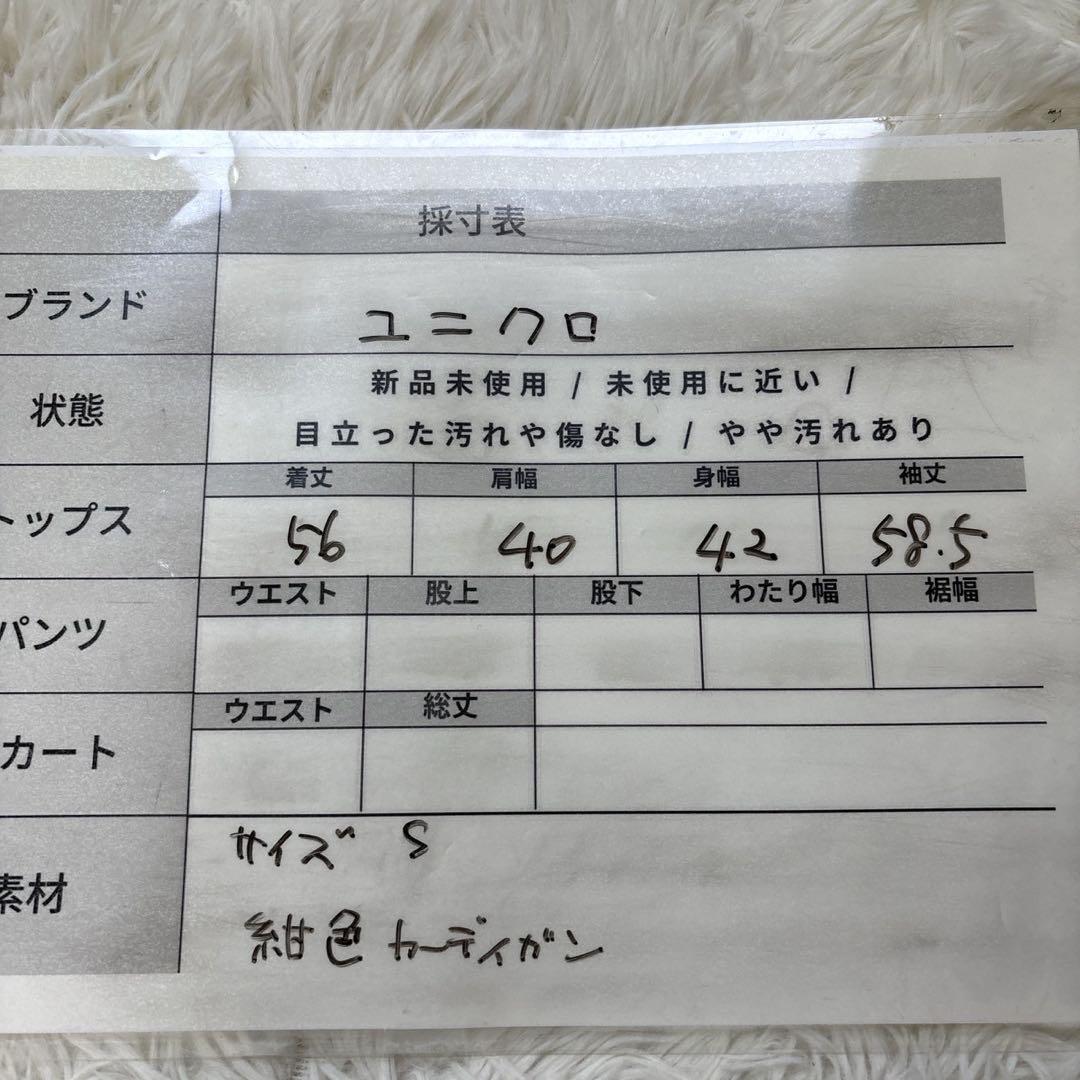 採寸表
ブランド ユニクロ
状態 新品未使用 / 未使用に近い /
目立った汚れや傷なし / やや汚れあり
着丈 肩幅 身幅 袖丈
トップス 56 40 42 58.5
ウエスト 股上 股下 わたり幅 裾幅
パンツ
ウエスト 総丈
カート
サイズ S
素材
紺色カーディガン